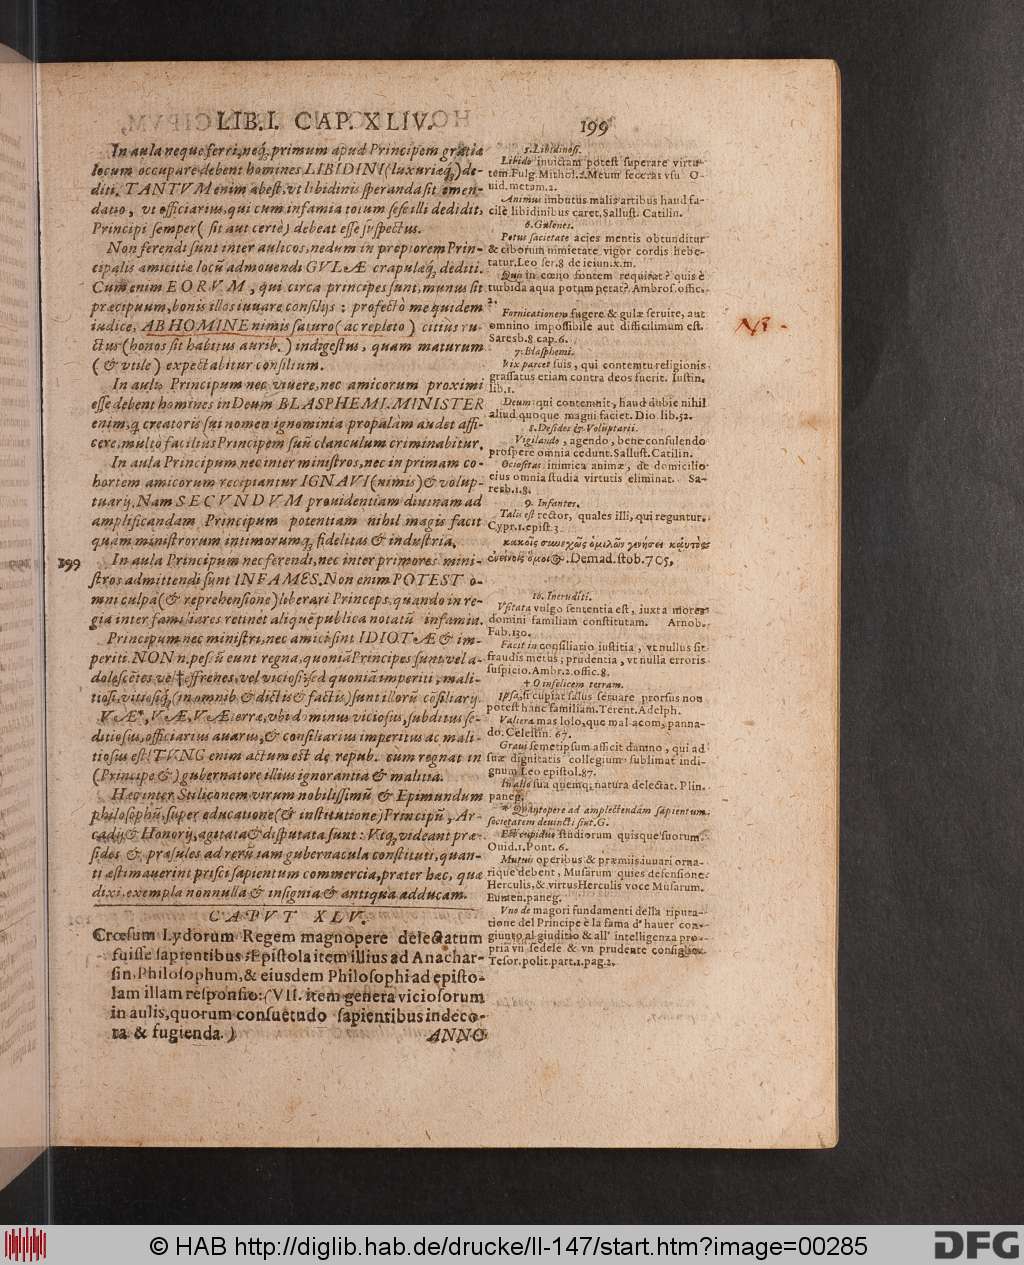 LIB. I. CAP. XLIV. 199
In aula neque ferri, neq; primum apud Principem gratiæ
locum occupare debent homines LIBIDINI (luxuriæq;) de-
diti. TANTVM enim abest, vt libidinis speranda sit emen-
datio, vt officiarius, qui cum infamia totum sese illi dedidit,
Principi semper (sit aut certè) debeat esse suspectus.
Non ferendi sunt inter aulicos, nedum in propiorem Prin-
cipalis amicitiæ locũ admouendi GVLÆ crapulæq; dediti.
Cum enim EORVM, qui circa principes sunt, munus sit
præcipuum, bonis illos iuuare consilijs: profectò me quidem
iudice, AB HOMINE nimis saturo (ac repleto) citius ru-
ctus (honos sit habitus aurib.) indigestus, quam maturum
(& vtile) expectabitur consilium.
In aulis Principum nec viuere, nec amicorum proximi
esse debent homines in Deum BLASPHEMI. MINISTER
enim, q; creatoris sui nomen ignominia propalàm audet affi-
cere, multò facilius Principem suũ clanculum criminabitur.
In aula Principum nec inter ministros, nec in primam co-
hortem amicorum recipiantur IGNAVI (nimis) & volup-
tuarij. Nam SECVNDVM prouidentiam diuinam ad
amplificandam Principum potentiam nihil magis facit
quàm ministrorum intimorumq; fidelitas & industria.
199
In aula Principum nec ferendi, nec inter primores mini-
stros admittendi sunt INFAMES. Non enim POTEST o-
mni culpâ (& reprehensione) liberari Princeps, quando in re-
gia inter familiares retinet aliquẽ publica notatũ infamia.
Principum nec ministri, nec amici sint IDIOTÆ & im-
periti. NON n. pessũ eunt regna, quoniã Principes sunt vel a-
dolescẽtes vel † effrenes, vel viciosi: sed quonia imperiti, mali-
tiosi, vitiosiq; (in omnib & dictis & factis) sunt illorũ cõsiliarij.
VÆ*, VÆ, VÆ terræ, vbi dominus viciosus, subditus se-
ditiosus, officiarius auarus, & consiliarius imperitus ac mali-
tiosus est! TVNC enim actum est de repub. cum regnat in
(Principe &) gubernatore illius ignorantia & malitia.
Hæc inter Stiliconem virum nobilissimũ & Epimundum
philosophũ, super educatione (& institutione) Principũ, Ar-
cadij & Honorij, agitata & disputata sunt: Vtiq; videant præ-
sides & præsules ad rerũ iam gubernacula constituti, quan-
ti æstimauerint prisci sapientum commercia, præter hæc, quæ
dixi, exempla nonnulla & insignia & antiqua adducam.
CAPVT XLV.
Crœsum Lydorum Regem magnopere delectatum
fuisse sapientibus: Epistola item illius ad Anachar-
sin, Philosophum, & eiusdem Philosophi ad episto-
lam illam responsio: (VII. item genera viciosorum
in aulis, quorum consuetudo sapientibus indeco-
ra & fugienda.)
ANNO
5. Libidinosi.
Libido inuictam potest superare virtu-
tem. Fulg. Mithol. 2. Metum fecerat vsu O-
uid. metam. 2.
Animus imbutus malis artibus haud fa-
cilè libidinibus caret. Sallust. Catilin.
6. Gulones.
Potus sacietate acies mentis obtunditur
& ciborum nimietate vigor cordis hebe-
tatur. Leo ser. 8 de ieiun. x. m.
Quis in cœno fontem requirat? quis è
turbida aqua potum petat? Ambros. offic.
2.
Fornicationem fugere & gulæ seruire, aut
omnino impossibile aut difficilimum est.
Saresb. 8. cap. 6.
7. Blasphemi.
Vix parcet suis, qui contemtu religionis
grassatus etiam contra deos fuerit. Iustin.
lib. 1.
Deum qui contemnit, haud dubie nihil
aliud quoque magni faciet. Dio. lib. 52.
8. Desides & Voluptarii.
Vigilando, agendo, bene consulendo
prospere omnia cedunt. Sallust. Catilin.
Ociositas inimica animæ, de domicilio
eius omnia studia virtutis eliminat. Sa-
resb. 1. 8.
9. Infantes.
Talis est rector, quales illi, qui reguntur.
Cypr. 1. epist. 3.
κακοῖς συνεχῶς ὁμιλῶν γενήσει καὐτὸς
ἐκείνοις ὅμοι. Demad. stob. 705.
10. Ineruditi.
Vsitata vulgo sententia est, iuxta mores
domini familiam constitutam. Arnob.
Fab. 130.
Facit in consiliario iustitia, vt nullus sit
fraudis metus; prudentia, vt nulla erroris
suspicio. Ambr. 2. offic. 8.
† O infelicem terram.
Ipsa, si cupiat salus seruare prorsus non
potest hanc familiam. Terent. Adelph.
Valiera mas lolo, que mal acom, panna-
do. Celestin. 67.
Graui semetipsum afficit damno, qui ad
suæ dignitatis collegium sublimat indi-
gnum Leo epistol. 87.
In alio sua quemq; natura delectat. Plin.
paneg.
* Quantopere ad amplectendam sapientum
societatem deuincti sint. G.
Est cupidus studiorum quisque suorum.
Ouid. 1. Pont. 6.
Mutuis operibus & præmiis iuuari orna-
rique debent, Musarum quies defensione
Herculis, & virtus Herculis voce Musarum.
Eumen. paneg.
Vno de magori fundamenti della riputa-
tione del Principe è la fama d'hauer con-
giunto al giuditio & all' intelligenza pro-
pria vn fedele & vn prudente consiglio.
Tesor. polit. part. 1. pag. 2.
© HAB http://diglib.hab.de/drucke/li-147/start.htm?image=00285
DFG